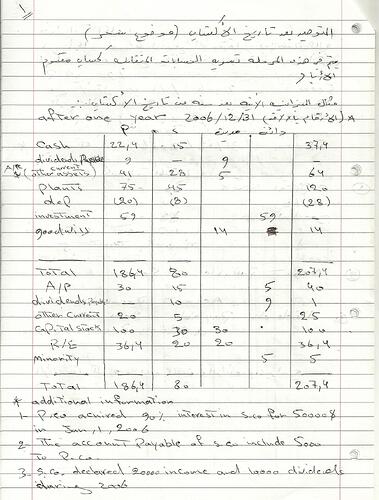 التوحيد بعد تاريخ الاكتساب (موضوع شهر)
يتم في هذه المرحلة تسوية الحسابات المتقابلة كحساب مقسوم
الأرباح
مثال الميزانية الآتية بعد سنة من تاريخ الاكتساب:
after one year 2006/12/31 (الأرقام بالآلاف)
P s مدينة دائنة
Cash 22,4 15 37,4
dividends 9 — 9 —
A/R & (other current assets) 41 28 5 64
plants 75 45 120
dep (20) (8) (28)
investment 59 — 59 —
goodwill — 14 14
Total 186,4 80 207,4
A/P 30 15 5 40
dividends — 10 9 1
other current 20 5 25
Capital stock 100 30 30 100
R/E 36,4 20 20 36,4
minority 5 5
Total 186,4 80 207,4
* additional information
1- P.co acuired 90% interest in s.co for 50000$
in Jun, 1, 2006
2- The account Payable of s.co include 5000
to P.co.
3- s.co. declared 20000 income and 10000 dividends
during 2006